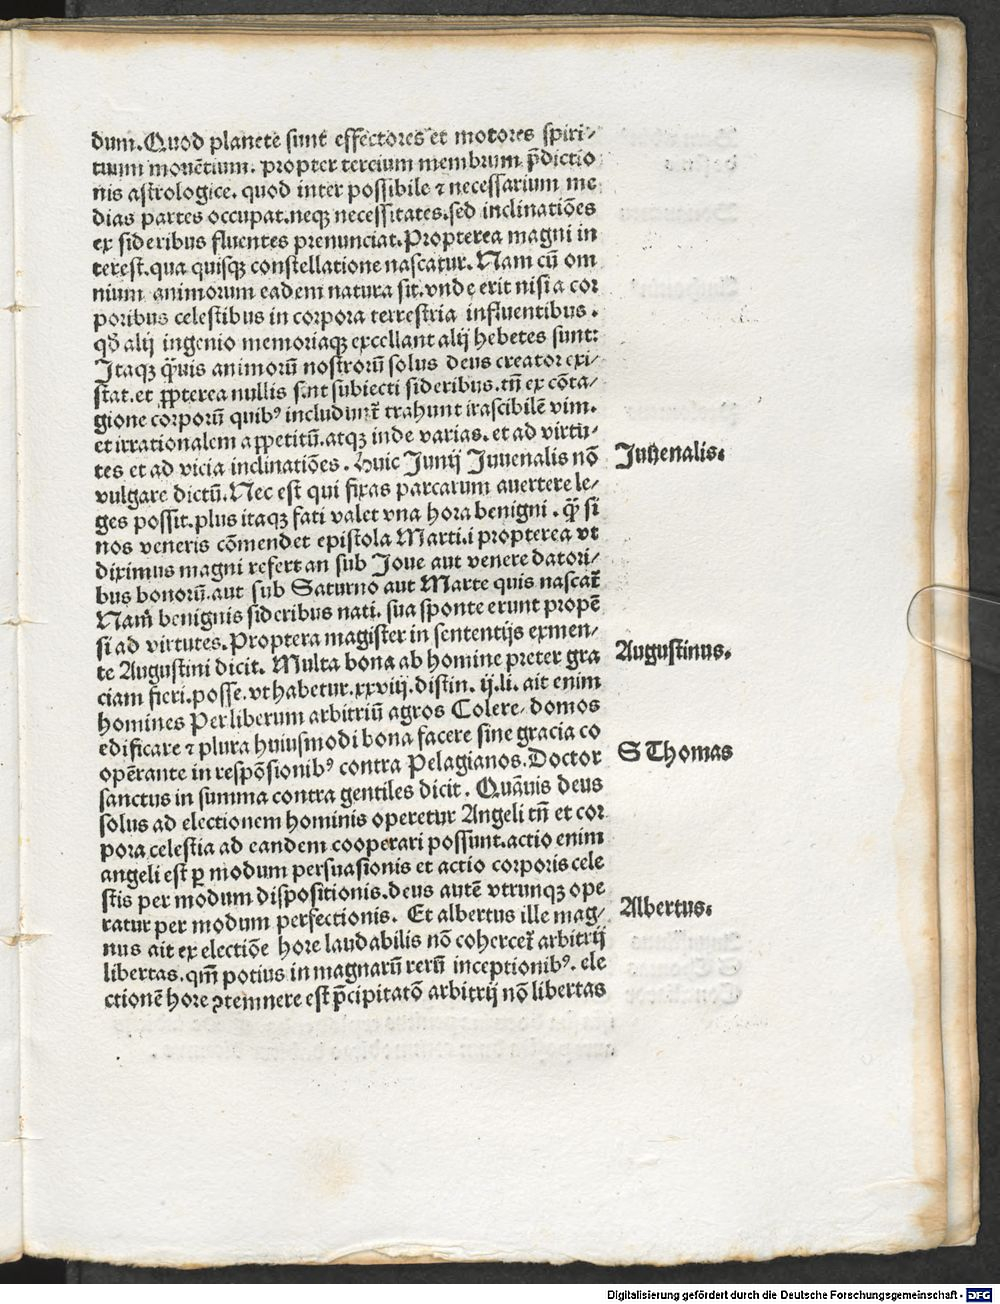 dum. Quod planete sunt effectores et motores spiri-
tuum mouētium. propter tercium membrum p̄dictio
nis astrologice. quod inter possibile ⁊ necessarium me
dias partes occupat. neqꝫ necessitates. sed inclinatiōes
ex sideribus fluentes prenunciat. Propterea magni in
terest. qua quisqꝫ constellatione nascatur. Nam cū om
nium animorum eadem natura sit. vnde erit nisi a cor
poribus celestibus in corpora terrestria influentibus.
qđ alij ingenio memoriaqꝫ excellant alij hebetes sunt:
Itaqꝫ q̄uis animorū nostrorū solus deus creator exi-
stat. et ꝓpterea nullis sint subiecti sideribus. tn̄ ex cōta-
gione corporū quibꝰ includunt᷑ trahunt irascibilē vim.
et irrationalem appetitū. atqꝫ inde varias. et ad virtu-
tes et ad vicia inclinatiōes. Huic Junij Juuenalis nō
vulgare dictū. Nec est qui fixas parcarum auertere le-
ges possit. plus itaqꝫ fati valet vna hora benigni. q̄ si
nos veneris cōmendet epistola Marti. i propterea vt
diximus magni refert an sub Joue aut venere datori-
bus bonorū. aut sub Saturno aut Marte quis nascat᷑
Nam̄ benignis sideribus nati. sua sponte erunt propē
si ad virtutes. Proptera magister in sententijs exmen-
te Augustini dicit. Multa bona ab homine preter gra
ciam fieri. posse. vt habetur. xxviij. distin. ij. li. ait enim
homines Per liberum arbitriū agros Colere, domos
edificare ⁊ plura huiusmodi bona facere sine gracia co
opērante in respōsionibꝰ contra Pelagianos. Doctor
sanctus in summa contra gentiles dicit. Quāuis deus
solus ad electionem hominis operetur Angeli tn̄ et cor
pora celestia ad eandem cooperari possunt. actio enim
angeli est ꝑ modum persuasionis et actio corporis cele
stis per modum dispositionis. deus autē vtrunqꝫ ope
ratur per modum perfectionis. Et albertus ille mag-
nus ait ex electiōe hore laudabilis nō cohercet᷑ arbitrij
libertas. qm̄ potius in magnarū rerū inceptionibꝰ. ele
ctionē hore ꝯtemnere est p̄cipitatō arbitrij nō libertas
Juuenalis.
Augustinus.
S Thomas
Albertus.
Digitalisierung gefördert durch die Deutsche Forschungsgemeinschaft - DFG